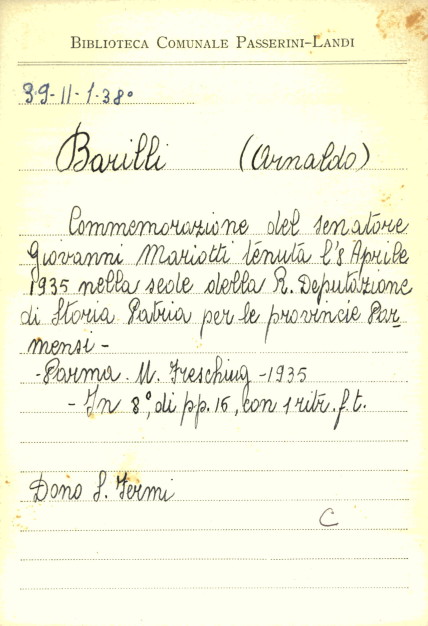 BIBLIOTECA COMUNALE PASSERINI-LANDI
39-11-1-38°
Barilli (Arnaldo)
Commemorazione del senatore
Giovanni Mariotti tenuta l'8 Aprile
1935 nella sede della R. Deputazione
di Storia Patria per le provincie Par=
mensi -
- Parma. M. Fresching - 1935
- In 8°, di pp. 15, con 1 ritr. f. t.
Dono S. Fermi
C